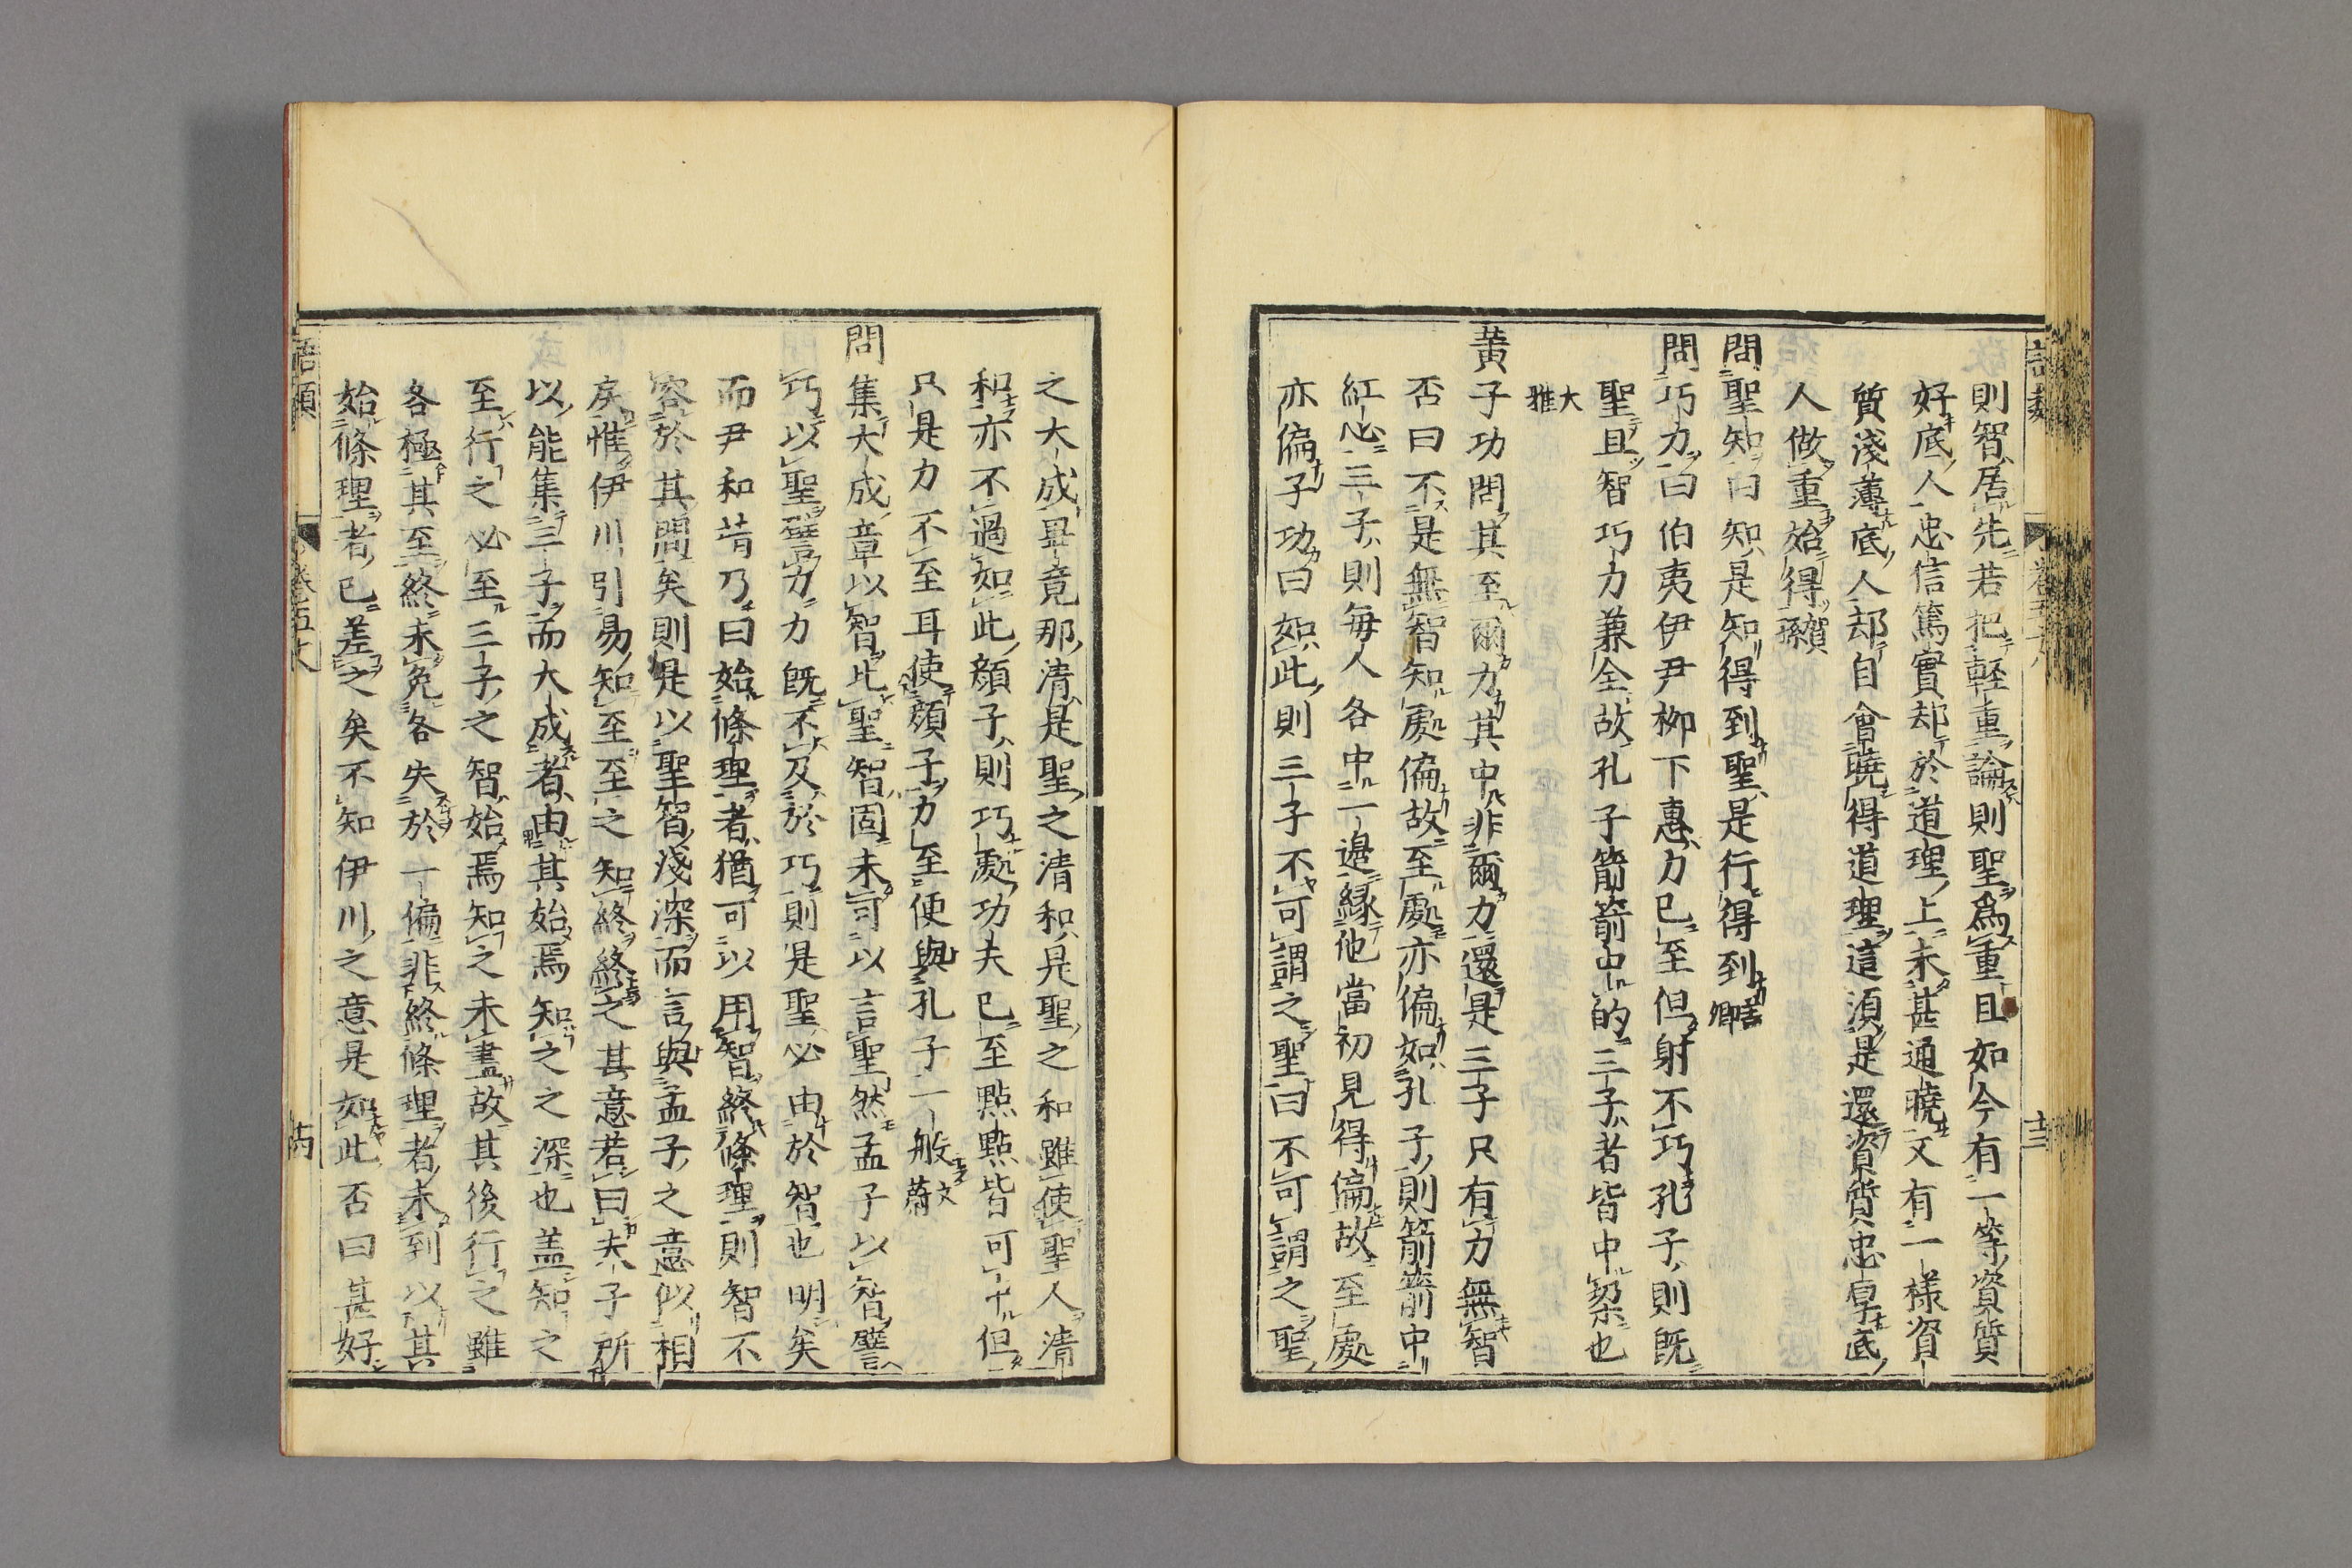 則智居先若把輕重論則聖爲重且如今有一等資質
好底人忠信篤實却於道理上未甚通曉又有一樣資
質淺薄底人却自會曉得道理這須是還資質忠厚底
人做重始得賀孫
問聖知曰知是知得到聖是行得到蓋卿
問巧力曰伯夷伊尹柳下惠力已至但射不巧孔子則既
聖且智巧力兼全故孔子箭箭中的三子者皆中垜也
大雅
黃子功問其至爾力其中非爾力還是三子只有力無智
否曰不是無智知處偏故至處亦偏如孔子則箭箭中
紅心三子則每人各中一邊緣他當初見得偏故至處
亦偏子功曰如此則三子不可謂之聖曰不可謂之聖
之大成畢竟那清是聖之清和是聖之和雖使聖人清
和亦不過如此顏子則巧處功夫已至點點皆可中但
只是力不至耳使顏子力至便與孔子一般文蔚
問集大成章以智比聖智固未可以言聖然孟子以智譬
巧以聖譬力力既不及於巧則是聖必由於智也明矣
而尹和靖乃曰始條理者猶可以用智終條理則智不
容於其間矣則是以聖智淺深而言與孟子之意似相
戾惟伊川引易知至至之知終終之其意若曰夫子所
以能集三子而大成者由其始焉知之之深也蓋知之
至行之必至三子之智始焉知之未盡故其後行之雖
各極其至終未免各失於一偏非終條理者未到以其
始條理者已差之矣不知伊川之意是如此否曰甚好